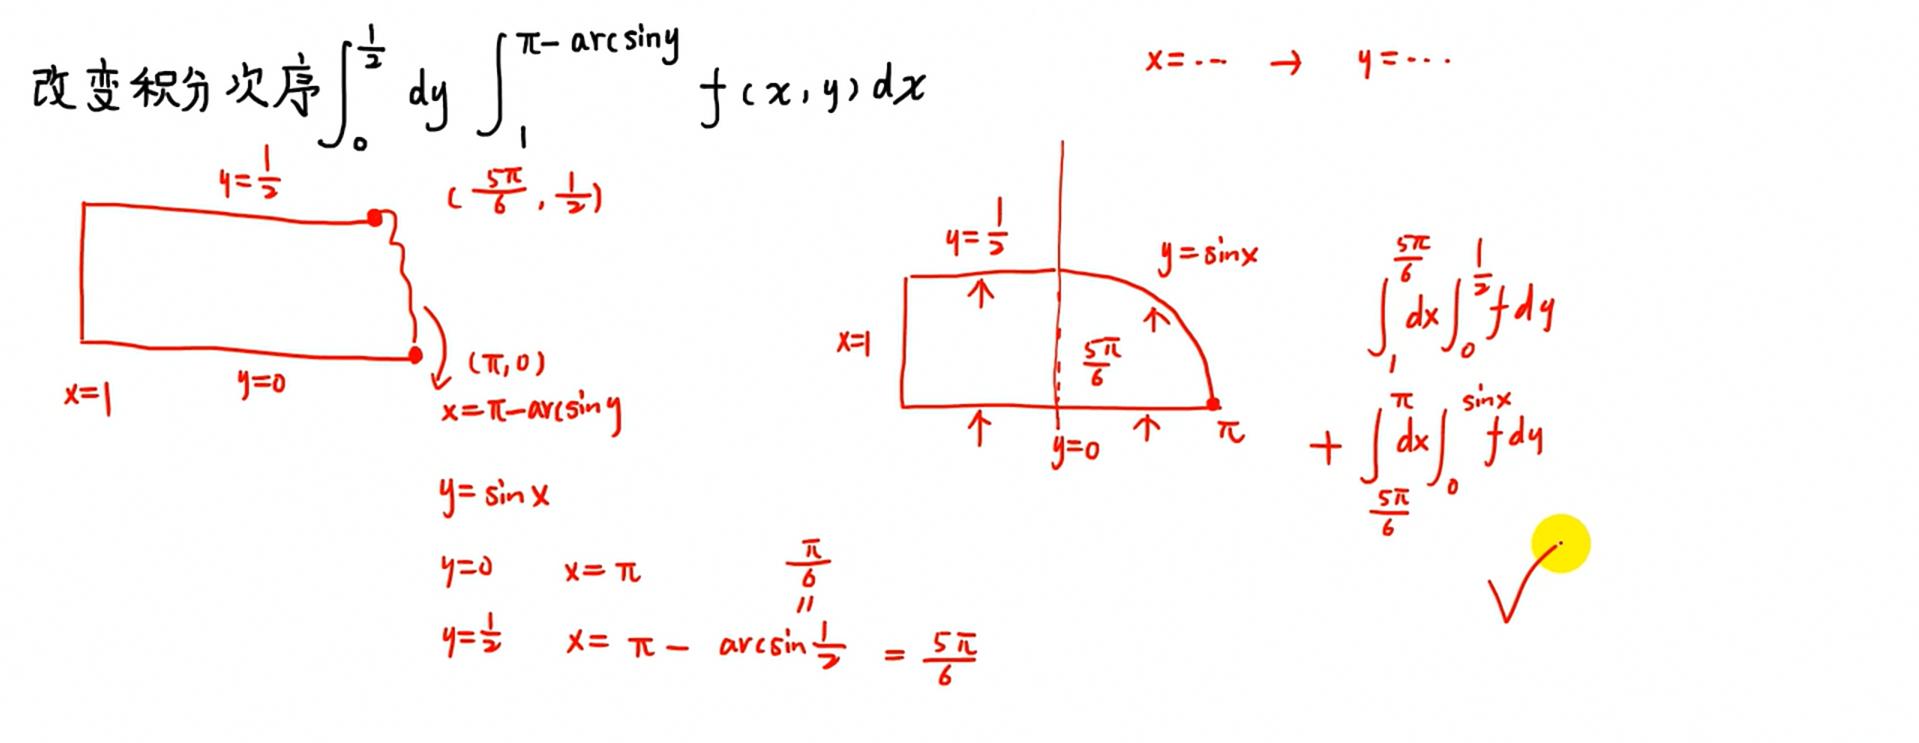 改变积分次序∫_0^{1/2} dy ∫_1^{π-arcsiny} f(x,y)dx
x=··· → y=···
y=1/2
(5π/6, 1/2)
x=1
y=0
(π,0)
x=π-arcsiny
y=sinx
y=0 x=π
π/6
=
y=1/2 x=π-arcsin1/2 = 5π/6
y=1/2
y=sinx
x=1
5π/6
y=0
π
∫_1^{5π/6} dx ∫_0^{1/2} f dy
+ ∫_{5π/6}^{π} dx ∫_0^{sinx} f dy